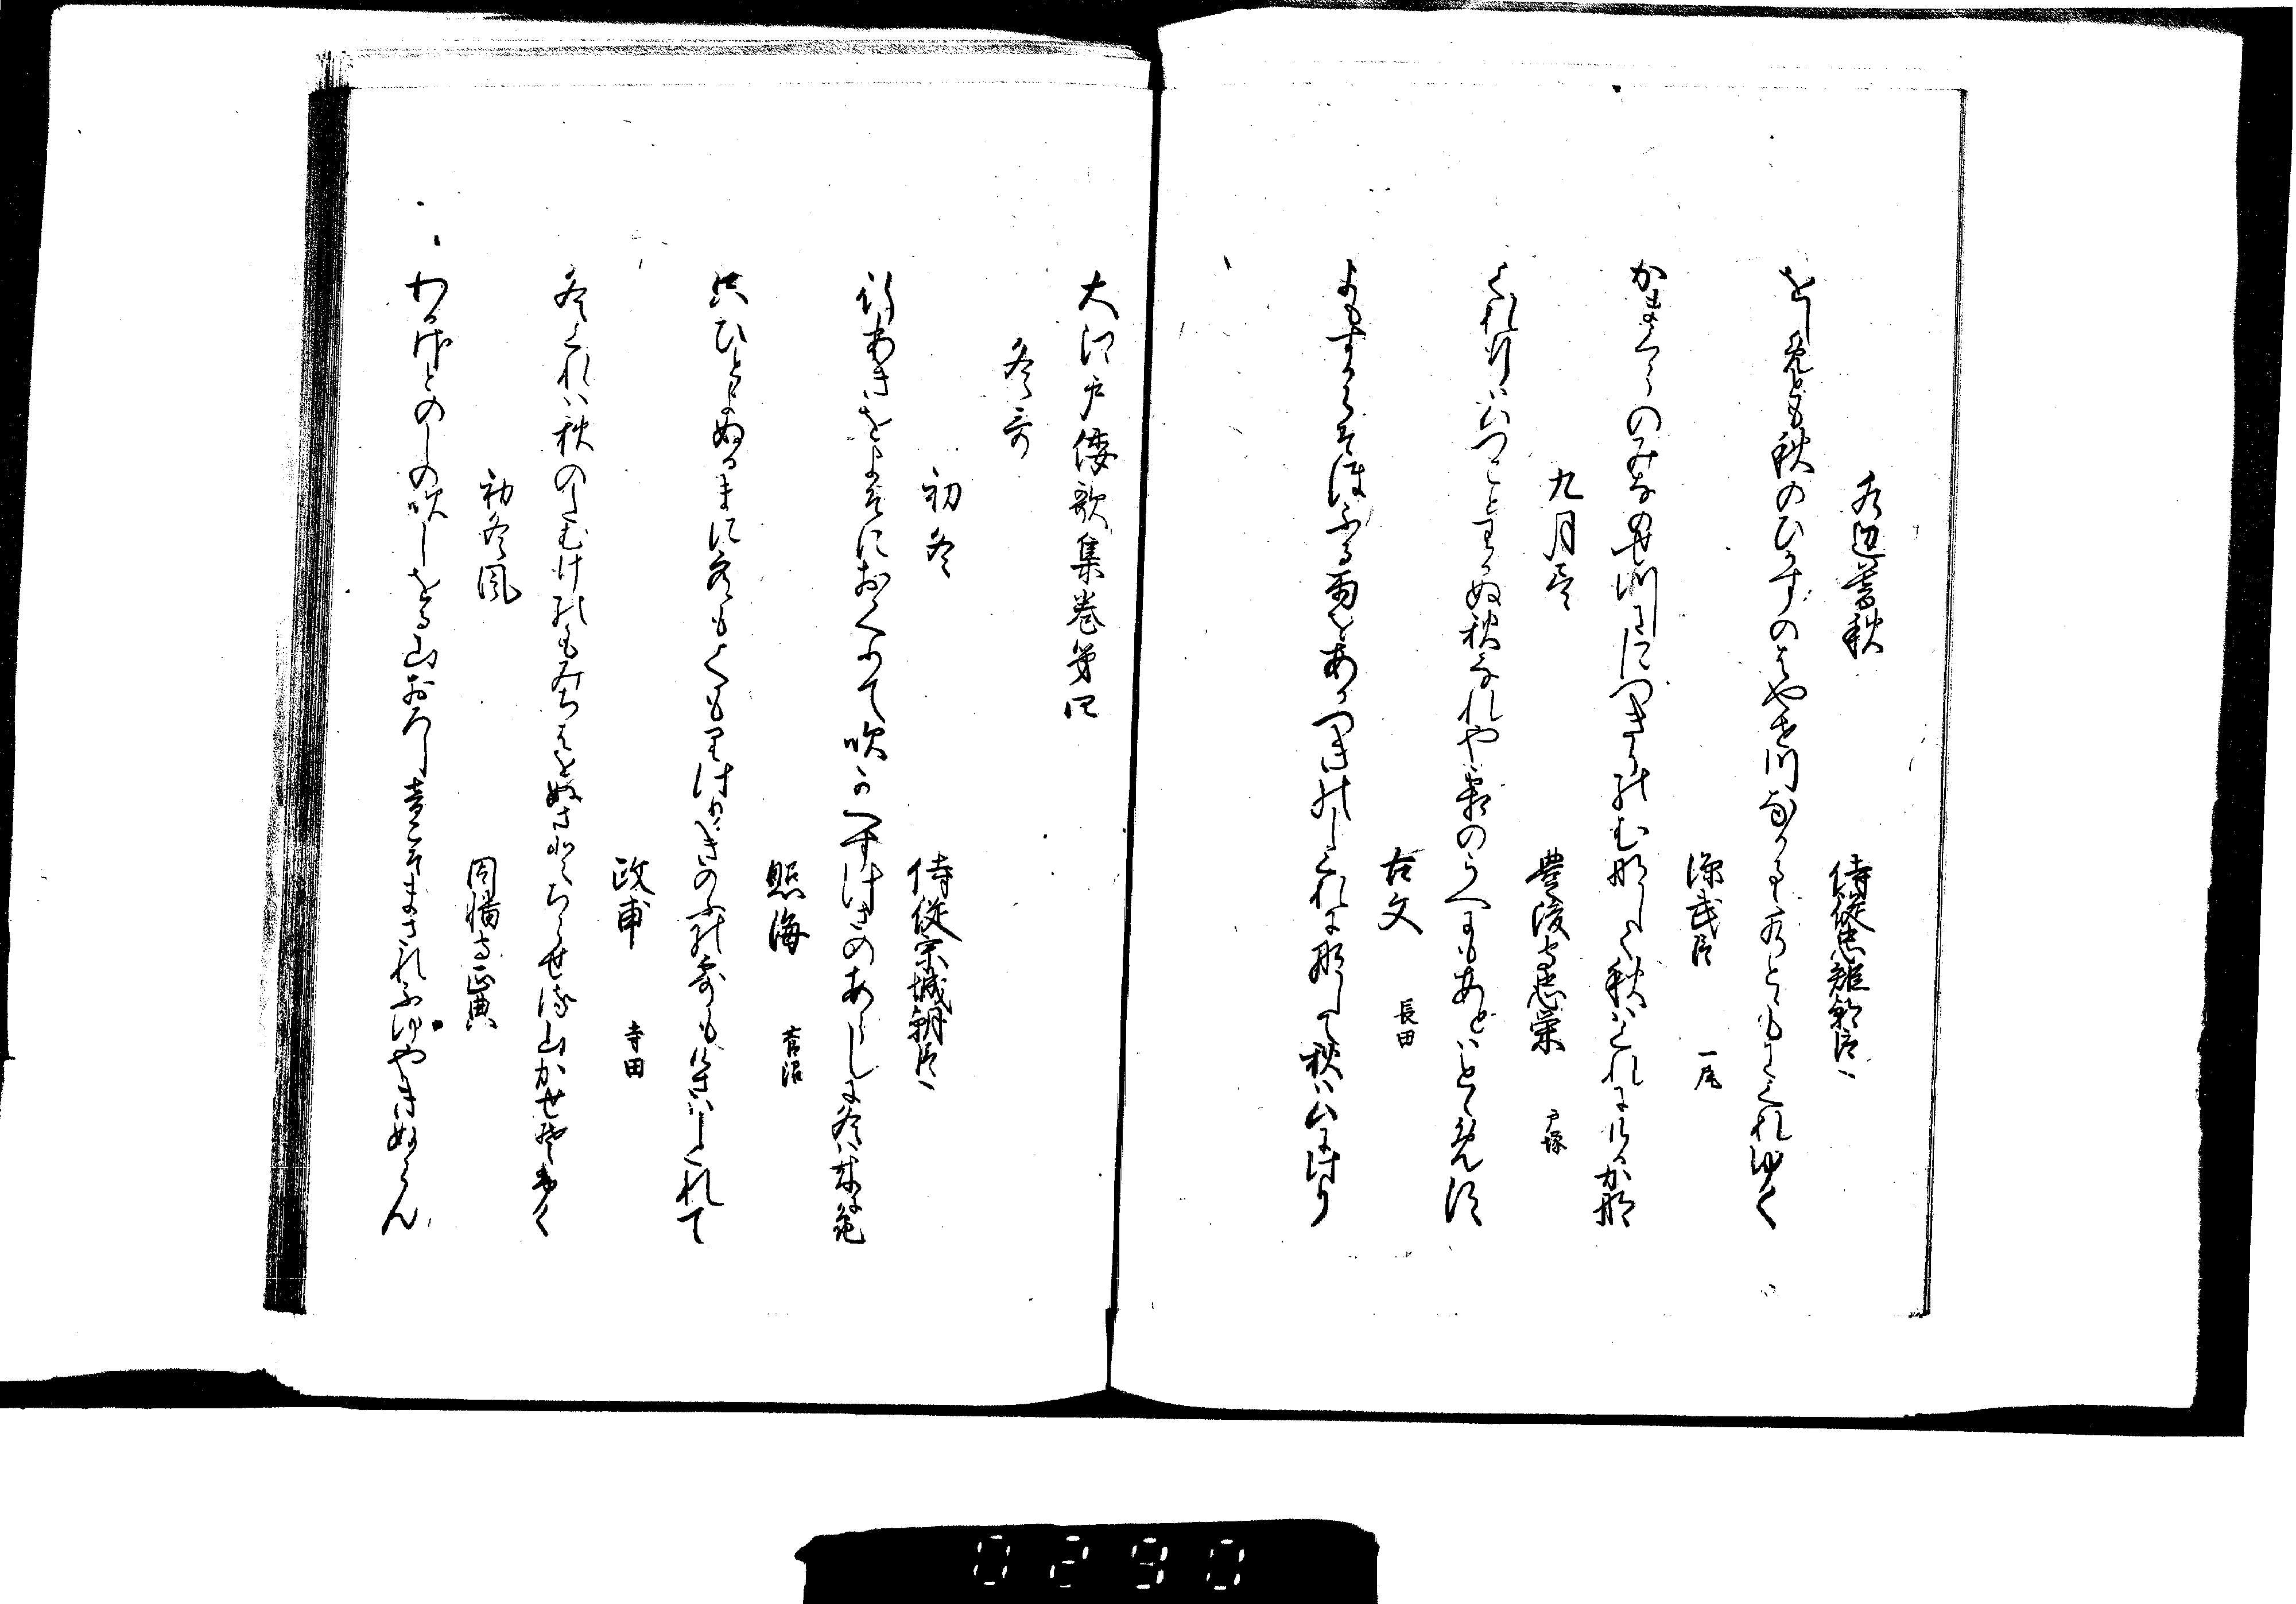 水辺暮秋
侍従忠雄朝臣
をしめとも秋のひかすのはやせ川なかるゝ水とともにくれゆく
深武臣　一尾
かまくらのみなのせ川につきもせむなしく秋はくれにけるかな
九月尽
豊後守忠栄　戸塚
くれ行はいつことわかぬ秋なれや霜のうへにもあとはとゝめす
古文　長田
よもすからそほふる雨とあかつきのしくれになして秋はいにけり
大江戸倭歌集巻第四
冬哥
初冬
侍従宗城朝臣
行あきをよそにおくりて吹かへすけさのあらしに冬は来に鬼
照海　菅沼
只ひとよぬるまに冬もくもりけりきのふの露もけさはしくれて
政甫　寺田
冬くれは秋のたむけのもみちはをぬさとちらせる山かせそふく
初冬風
因幡守正典
わかやとのしの吹しをる山おろし音こそまされふゆやきぬらん
0290